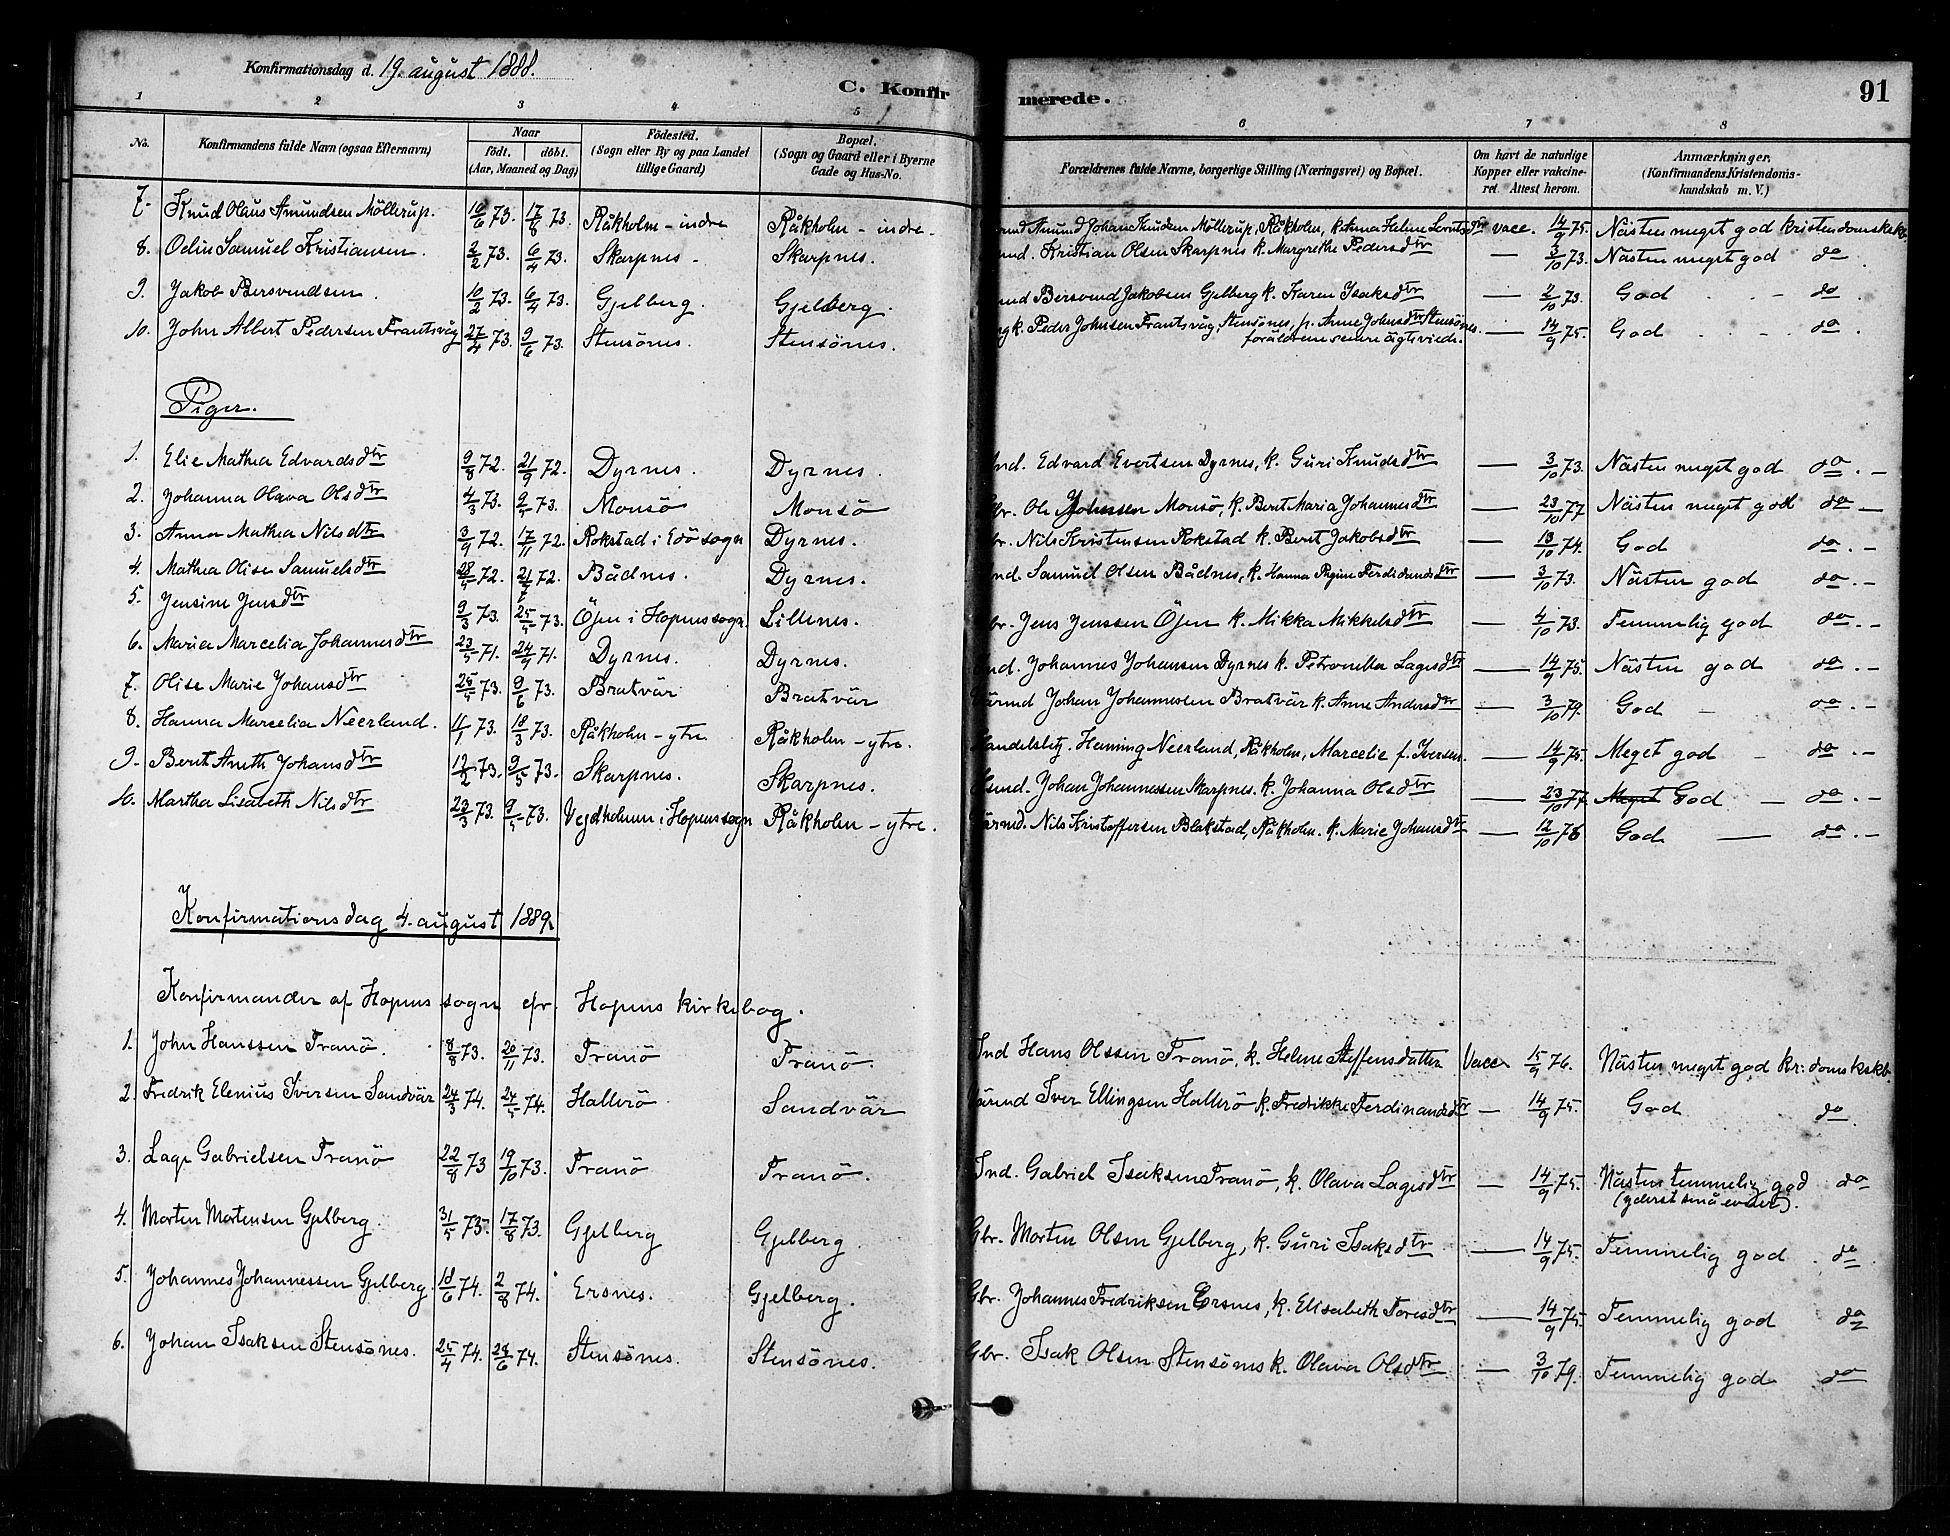 Konfirmationsdag d. 19. august 1888.
C. Konfirmerede.
91
1 2 3 4 5 6 7 8
No. Konfirmandens fulde Navn (ogsaa Efternavn) Naar födt. döbt. (Aar, Maaned og Dag) Födested. (Sogn eller By og paa Landet tillige Gaard) Bopæl. (Sogn og Gaard eller i Byerne Gade og Hus-No. Forældrenes fulde Navne, borgerlige Stilling (Næringsvei) og Bopæl. Om havt de naturlige Kopper eller vakcineret. Attest herom. Anmærkninger. (Konfirmandens Kristendomskundskab m. V.)
7. Knud Olaus Amundsen Möllerup. 10/6 73. 17/8 73. Råkholm - indre Råkholm - indre. Amund Johan Knudsen Möllerup, Råkholm, k. Anna Helene dtr vacc. 14/9 75. Nästen meget god kristendomskskb.
8. Odin Samuel Kristiansen. 2/2 73. 6/4 73. Skarpnes - Skarpnes. Kristian Olsen Skarpnes k. Margrethe Pedersdtr — 3/10 73. Nästen meget god do.
9. Jakob Bersvendsen. 10/2 73. 6/4 73. Gjelberg. Gjelberg. Bersvend Jakobsen Gjelberg k. Karen Isaksdtr — 2/10 73. God - do.
10. John Albert Pedersen Frantsvåg 27/4 73. 9/6 73. Stensönes. Stensönes. Peder Johnsen Frantsvåg, Stensönes, p. Anne Johnsdtr Stensönes. — 14/9 75. God do.
foräldrene senere ägteviede.
Piger.
1. Elie Mathea Edvardsdtr 9/8 72. 21/9 72. Dyrnes. Dyrnes. Ind. Edvard Evertsen Dyrnes, k. Guri Knudsdtr — 3/10 73. Nästen meget god do. -
2. Johanna Olava Olsdtr 4/3 73. 9/5 73. Monsö Monsö Gbr. Ole Johnsen Monsö, k. Berit Maria Johannesdtr — 23/10 77 Nästen meget god do -
3. Anna Mathea Nilsdtr 3/9 72. 17/11 72. Rokstad i Edö sogn Dyrnes. Gbr. Nils Kristensen Rokstad k. Berit Jakobsdtr — 13/10 74. God do. -
4. Mathea Olise Samuelsdtr 28/5 72. 21/7 72. Bådnes. Dyrnes. Ind. Samuel Olsen Bådnes, k. Hanna Regine Ferdinandsdtr — 3/10 73. Nästen god do. -
5. Jensine Jensdtr 9/3 73. 25/5 73. Öjen i Hopens sogn. Lillenes. Gbr. Jens Jenssen Öjen k. Mikka Mikkelsdtr — 4/10 73. Temmelig god do. -
6. Maria Marcelia Johannesdtr 23/5 71. 24/9 71. Dyrnes. Dyrnes. Ind. Johannes Johansen Dyrnes k. Petronella Lagesdtr — 14/9 75. Nästen god do. -
7. Olise Marie Johansdtr 25/5 73. 9/6 73. Bratvär Bratvär Gårmd Johan Johannessen Bratvär k. Anne Andersdtr — 3/10 79. God - do. -
8. Hanna Marcelia Neerland. 11/1 73. 18/3 73. Råkholm - ytre Råkholm - ytre. Handelsbetj. Henning Neerland, Råkholm, Marcelie f. Iversen. — 14/9 75. Meget god - do. -
9. Berit Aneth Johansdtr 12/2 73. 9/5 73. Skarpnes. Skarpnes. Johan Johannessen Skarpnes. k. Johanna Olsdtr — 23/10 77. Meget God - do. -
10. Martha Lisabeth Nilsdtr 23/3 73. 9/5 73. Vejdholmen i Hopens sogn Råkholm - ytre. Gårmd. Nils Kristoffersen Blakstad, Råkholm. k. Marie Johansdtr — 12/10 76 God — do. -
Konfirmationsdag 4. august 1889.
Konfirmander af Hopens sogn cfr. Hopens kirkebog.
1. John Hanssen Tranö. 8/8 73. 20/11 73. Tranö Tranö. Ind Hans Olssen Tranö, k. Helene Steffensdatter Vacc 15/9 76. Nästen meget god kr:domskskb.
2. Fredrik Elenius Iversen Sandvär 24/3 74. 24/5 74. Hallerö Sandvär Gårmd Iver Ellingsen Hallerö k. Fredrikke Ferdinandsdtr — 14/9 75. God do.
3. Lage Gabrielsen Tranö 22/8 73 19/10 73. Tranö Tranö. Ind. Gabriel Isaksen Tranö, k. Olava Lagesdtr — 14/9 75. Nästen temmelig god do
(yderst små evner).
4. Morten Mortensen Gjelberg. 31/5 73. 17/8 73. Gjelberg Gjelberg. Gbr. Morten Olsen Gjelberg, k. Guri Isaksdtr — 14/9 75. Temmelig god. do
5. Johannes Johannessen Gjelberg. 18/6 74. 2/8 74. Ersnes. Gjelberg. Gbr. Johannes Fredriksen Ersnes, k. Elisabeth Toresdtr — 14/9 75. Temmelig god do
6. Johan Isaksen Stensönes. 25/4 74. 24/6 74. Stensönes. Stensönes. Gbr. Isak Olsen Stensönes k. Olava Olsdtr — 3/10 79. Temmelig god do